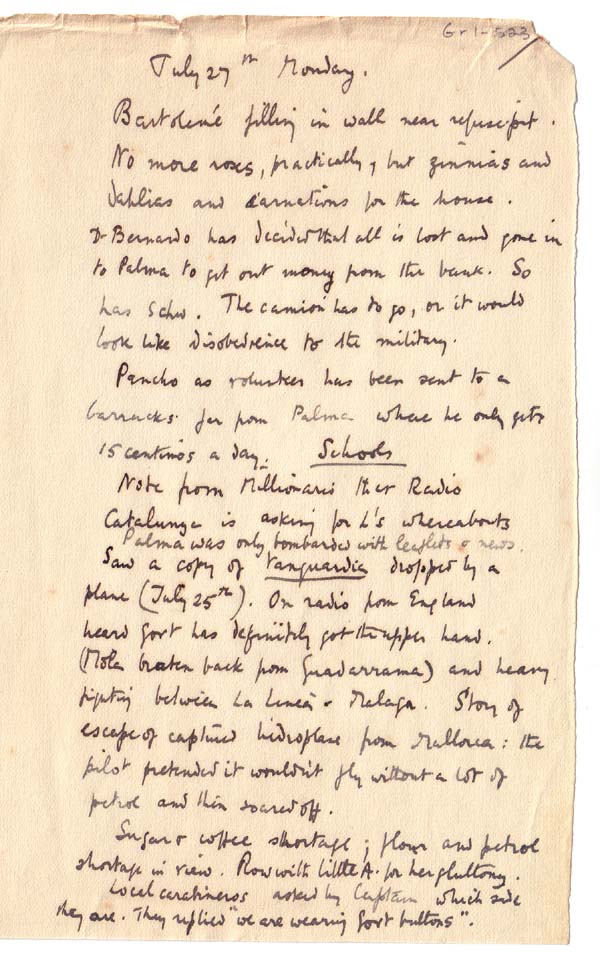 Gr 1-523
July 27th Monday.
Bartolomé filling in wall near refuse-pit.
No more roses, practically, but zinnias and
dahlias and carnations for the house.
Dr Bernardo has decided that all is lost and gone in
to Palma to get out money from the bank. So
has Schw. The camion has to go, or it would
look like disobedience to the military.
Pancho as volunteer has been sent to a
barracks far from Palma where he only gets
15 centimos a day. Schools
Note from Millionario that Radio
Catalunya is asking for L's whereabouts
Palma was only bombarded with leaflets & news.
Saw a copy of Vanguardia dropped by a
plane (July 25th). On radio from England
heard Govt has definitely got the upper hand.
(Mola beaten back from Guadarrama) and heavy
fighting between La Linea & Malaga. Story of
escape of captured hidroplane from Mallorca: the
pilot pretended it wouldn't fly without a lot of
petrol and then soared off.
Sugar & coffee shortage; flour and petrol
shortage in view. Row with little A. for her gluttony.
Local carabineros asked by Captain which side
they are. They replied "we are wearing Govt buttons".